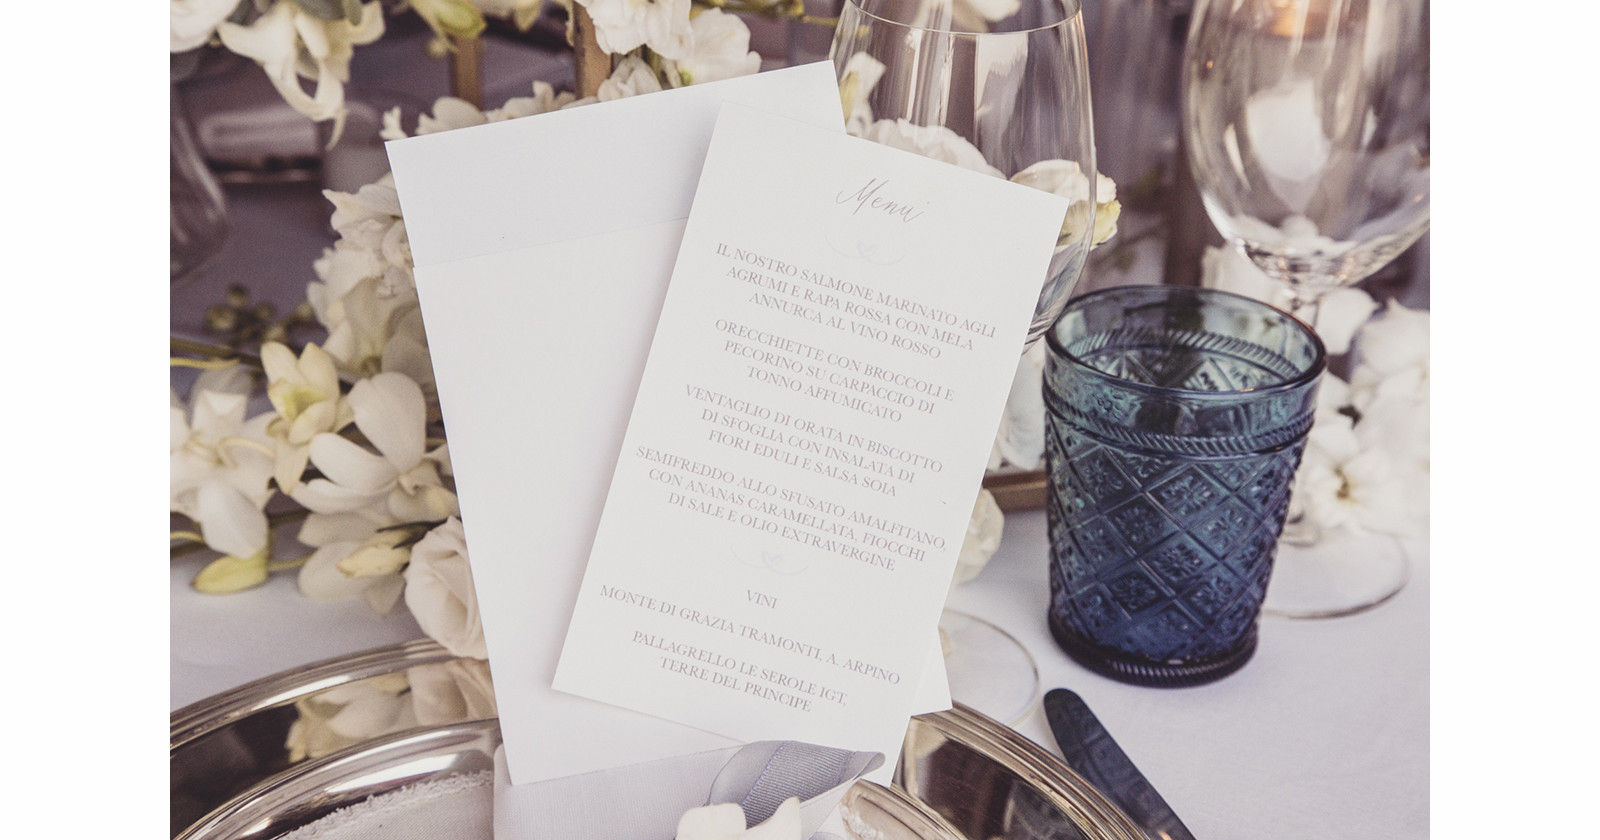 Menu
IL NOSTRO SALMONE MARINATO AGLI
AGRUMI E RAPA ROSSA CON MELA
ANNURCA AL VINO ROSSO
ORECCHIETTE CON BROCCOLI E
PECORINO SU CARPACCIO DI
TONNO AFFUMICATO
VENTAGLIO DI ORATA IN BISCOTTO
DI SFOGLIA CON INSALATA DI
FIORI EDULI E SALSA SOIA
SEMIFREDDO ALLO SFUSATO AMALFITANO,
CON ANANAS CARAMELLATA, FIOCCHI
DI SALE E OLIO EXTRAVERGINE
VINI
MONTE DI GRAZIA TRAMONTI, A. ARPINO
PALLAGRELLO LE SEROLE IGT,
TERRE DEL PRINCIPE